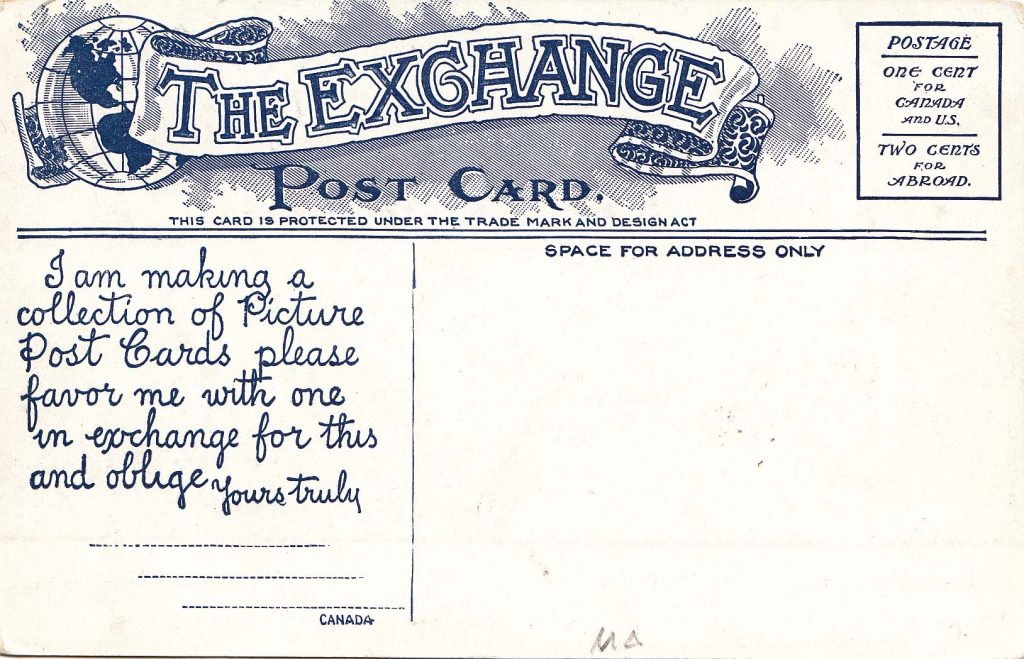 THE EXCHANGE
POST CARD.
THIS CARD IS PROTECTED UNDER THE TRADE MARK AND DESIGN ACT
POSTAGE
ONE CENT
FOR
CANADA
AND U.S.
TWO CENTS
FOR
ABROAD.
I am making a
collection of Picture
Post Cards please
favor me with one
in exchange for this
and oblige
Yours truly
CANADA
SPACE FOR ADDRESS ONLY